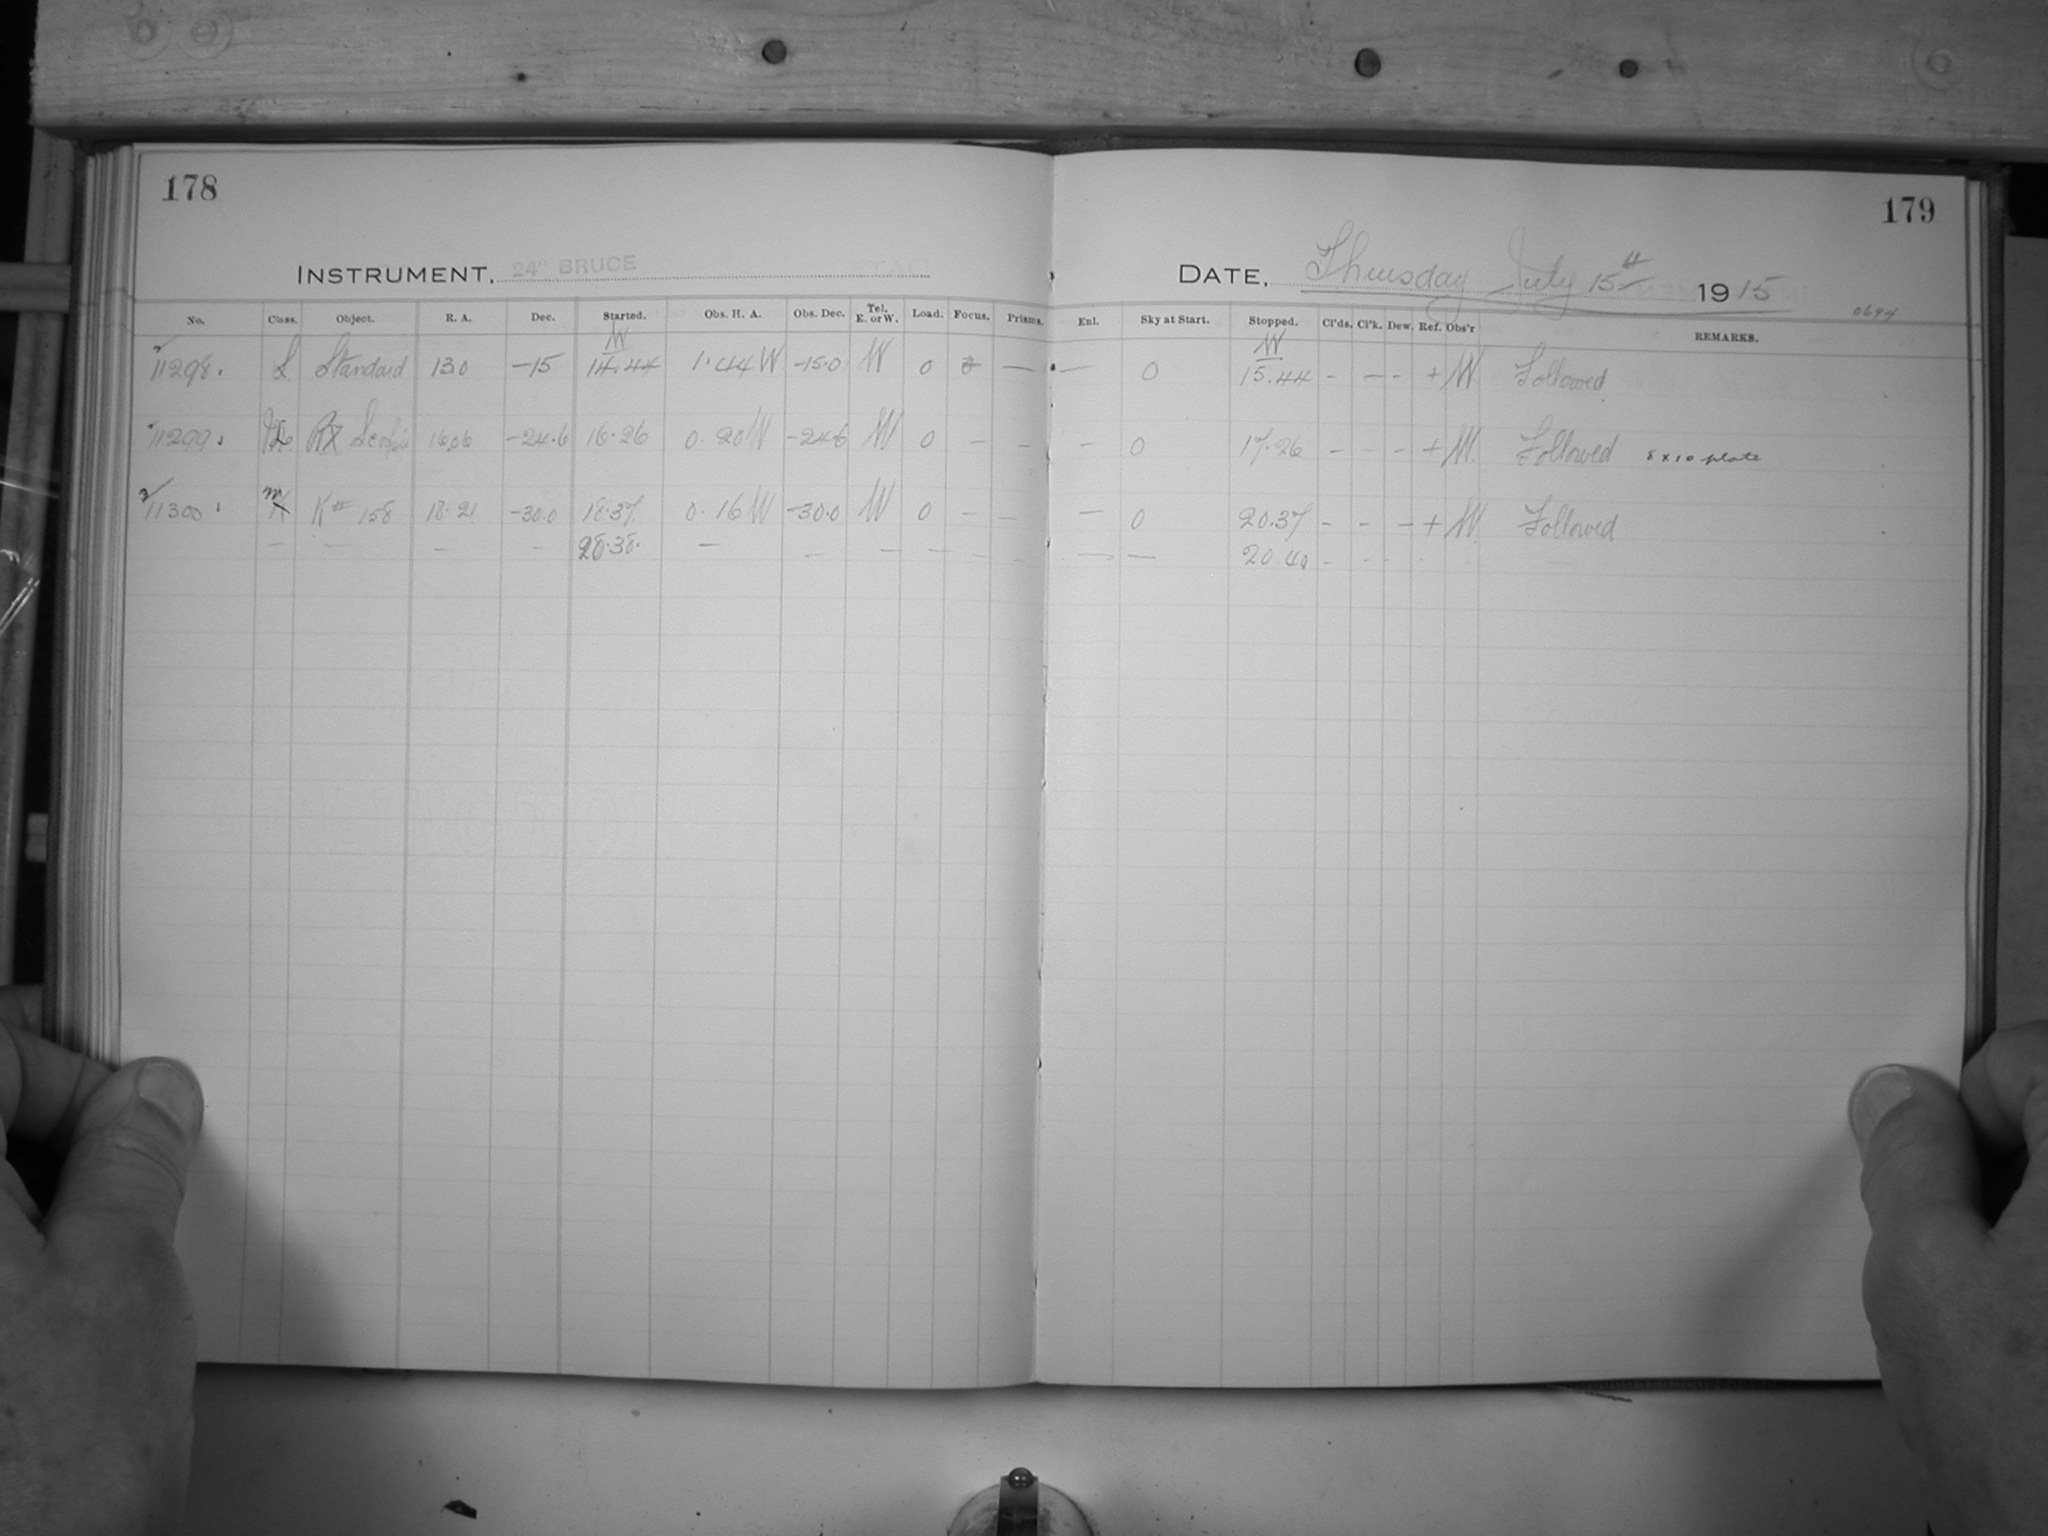 178
179
INSTRUMENT, 24" BRUCE
DATE, Thursday July 15th 1915
0694
No. Class. Object. R. A. Dec. Started. Obs. H. A. Obs. Dec. Tel. E. or W. Load. Focus. Prisms. Enl. Sky at Start. Stopped. Cl'ds. Cl'k. Dew. Ref. Obs'r REMARKS.
W W
11298. L Standard 13.0 -15 14.44 1.44 W -15.0 W 0 — — 0 15.44 - - - + W Followed
11299. 16.06 -24.6 16.26 0.20 W -24.6 W 0 - - - 0 17.26 - - - + W. Followed 8 x 10 plate
11300. m K# 158 18.21 -30.0 18.37 0.16 W -30.0 W 0 - - — 0 20.37 - - - + W. Followed
— — — — 20.38. — — — — — — — — 20 40 - - -